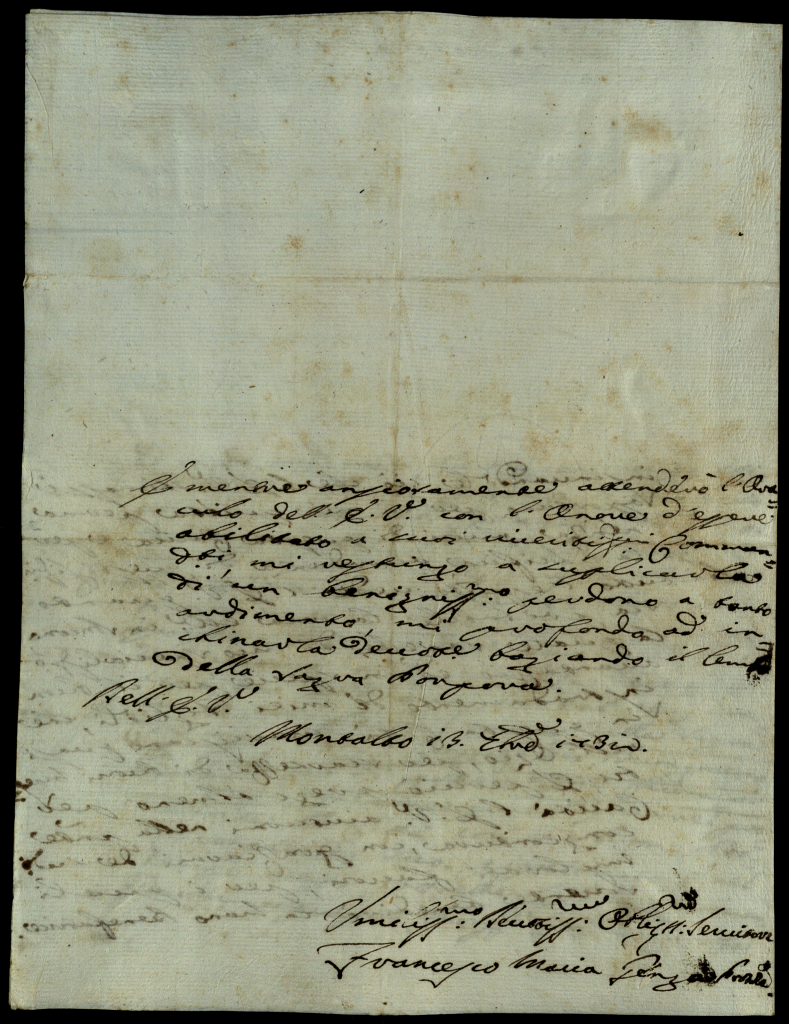 E mentre ansiosamente attenderò l'Ora=
colo dell'E. V. con l'Onore d'essere
abilitato a suoi riveritissimi Comman=
di, mi restringo a supplicarla
di un benigniss:mo perdono a tanto
ardimento, mi profondo ad in=
chinarla baziando il lembo
della Sagra Porpora.
Dell'E. V.
Montalto 13.
Umiliss:mo Obligss: Servitore
Francesco Maria